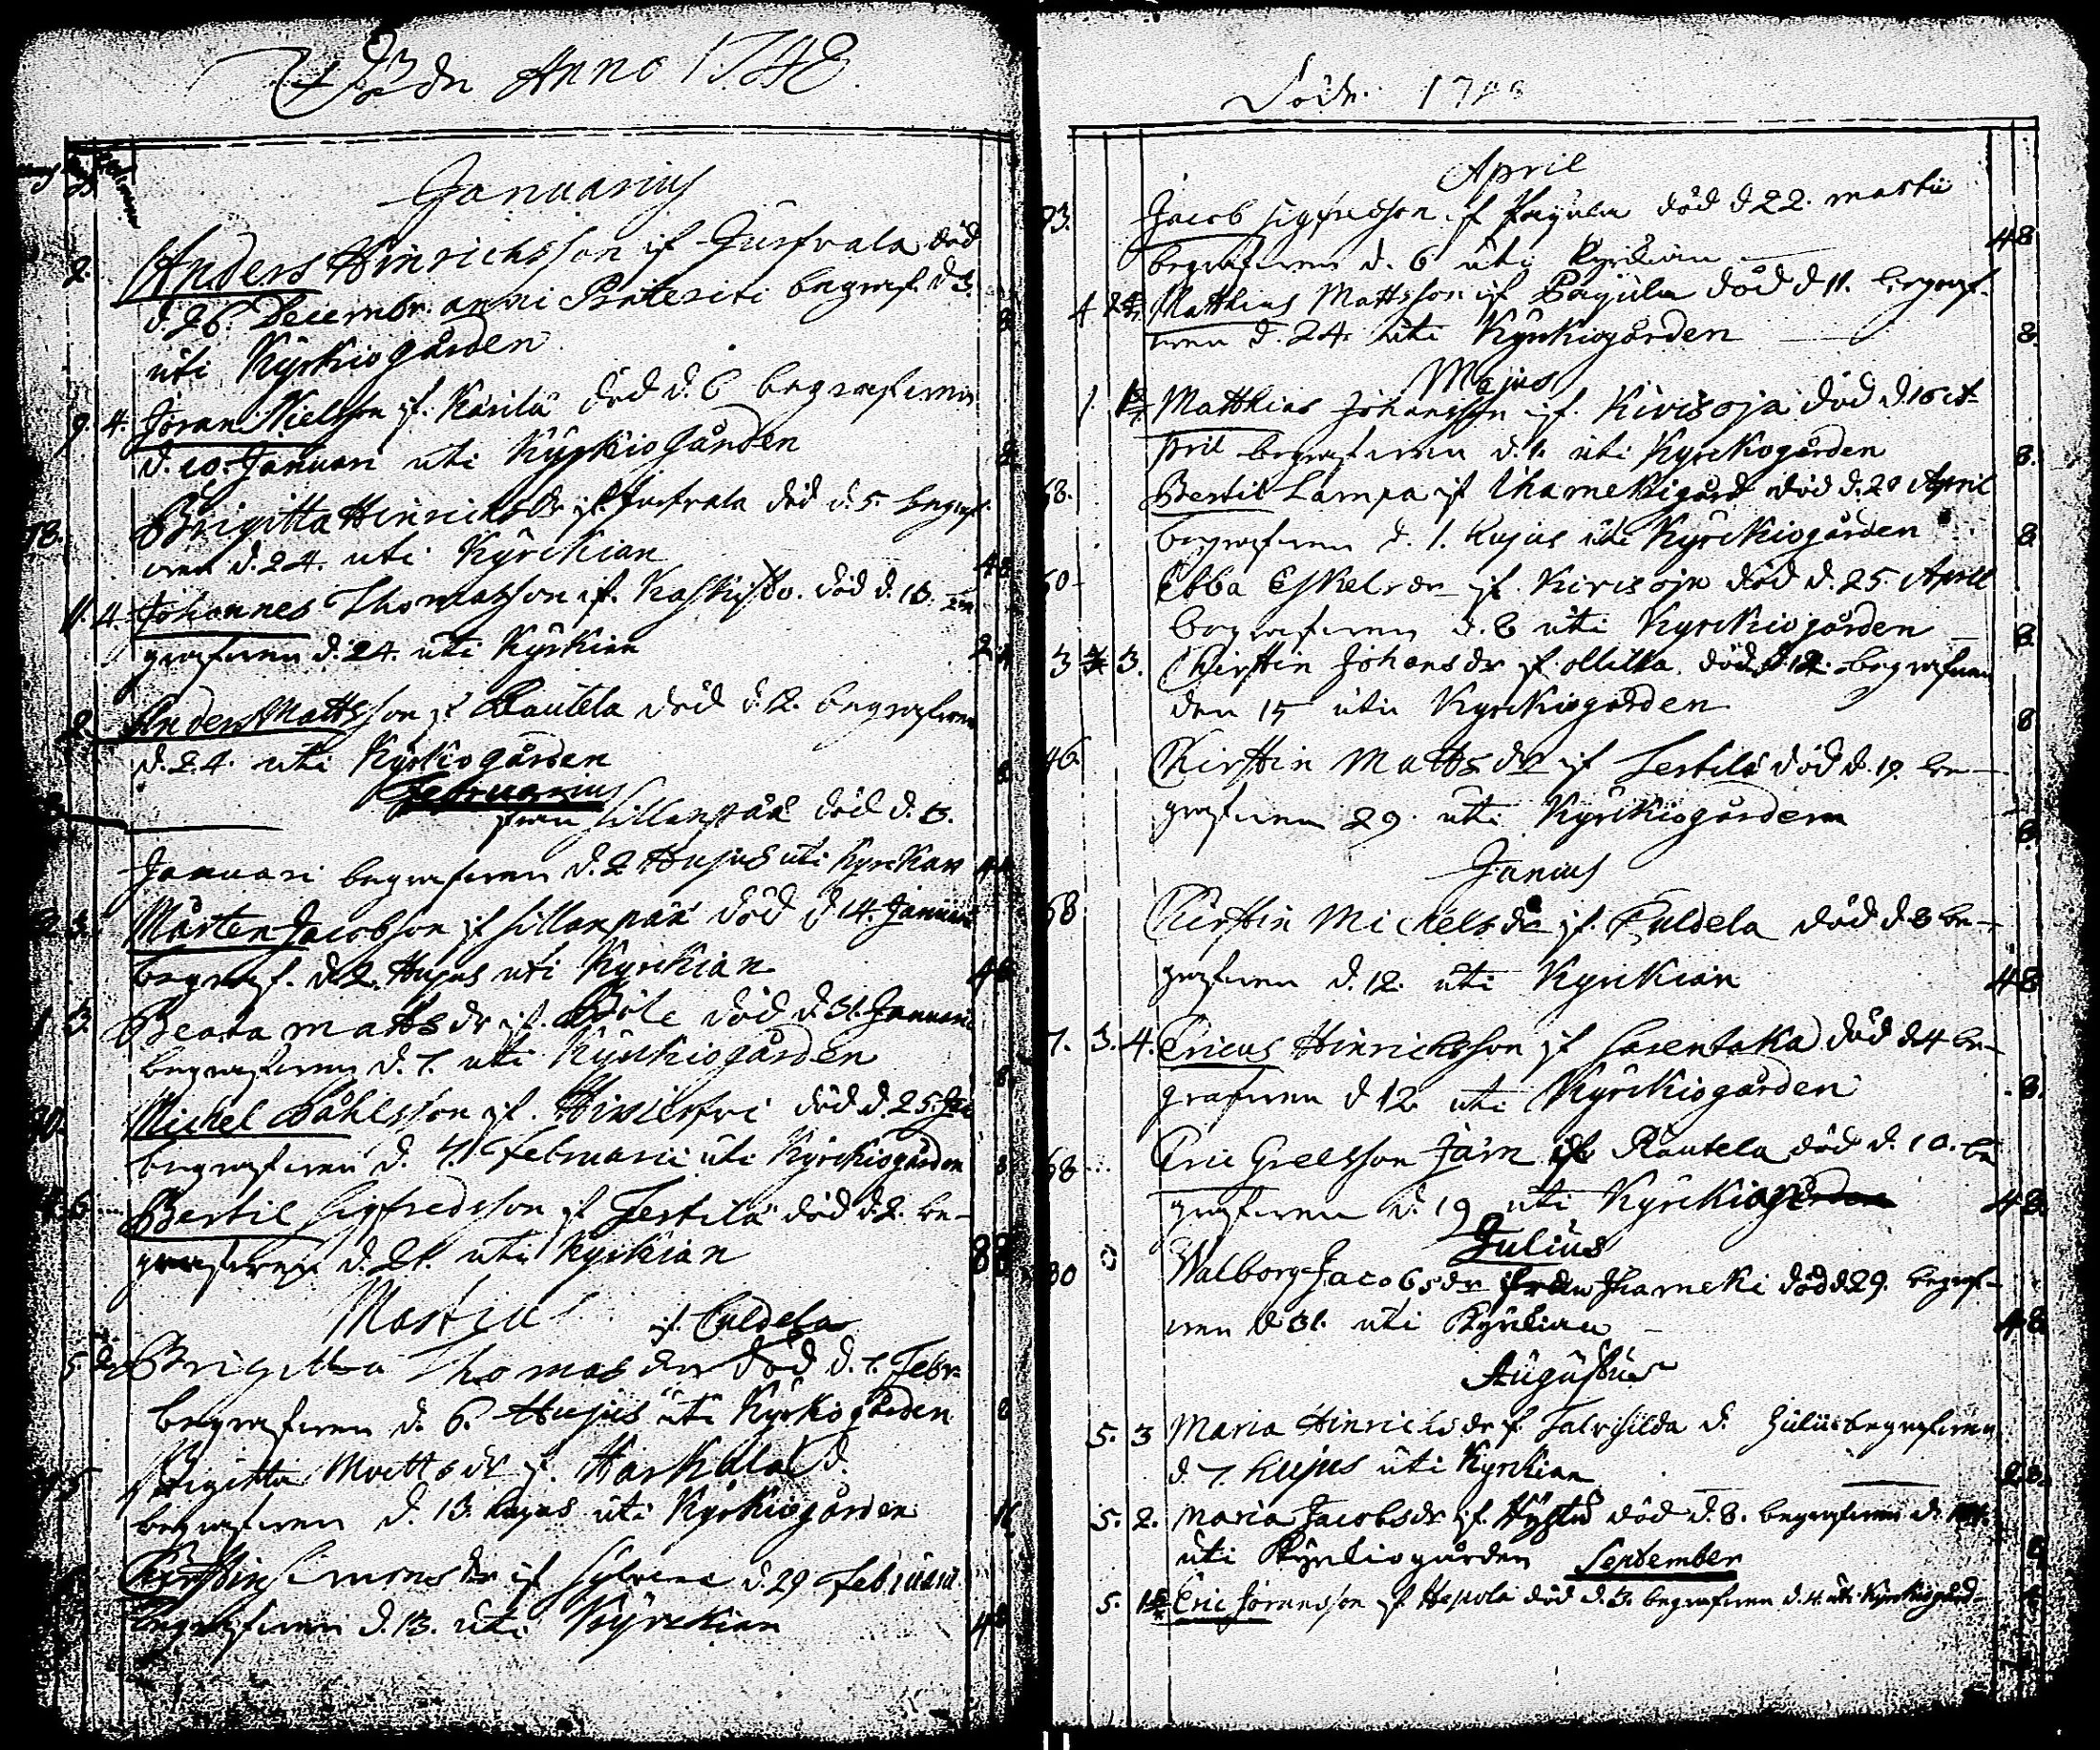 Anno 1748
Januarius
2. Anders Hinrichsson if Jusfvala död
d. 26. Decembr. anni Præteriti begraf. d 3.
uti Kyrkiogården
9. 4. Jöran Nielsson if. Karila död d. 6 begrafven
d. 10. Januari uti Kyrkiogården
78. Brigitta Hinrichsdr if Jusfvala död d. 5. begraf-
ven d. 24. uti Kyrckian 48
11. 4. Johannes Thomasson if. död d. 13. be
grafven d. 24. uti Kyrkian 24
2. Anders Mattsson if Rautela död d. 2. begrafven
d. 24. uti Kyrkiogården
Februarius
från Sillanpää död d. 3.
Januari begrafven d. 2 Hujus uti Kyrckan
2 3. Mårten Jacobsson if Sillanpää död d 14. Januari
begraf. d. 2. Hujus uti Kyrckian
1. 3. Beata Mattsdr if. Böle död d. 31. Januari
begrafven d. 7. uti Kyrckiogården 8
Michel Påhlsson if. död d 25. Ja
begrafven d. 7. Februarii uti Kyrckiogården 8
Bertil Sigfredsson if Jertila död d. 2. be-
grafven d. 21. uti Kyrckian 88
Martius
if. Culdela
5. Brigitta Thomasdr död d. 7. Febr.
begrafven d. 6. Hujus uti Kyrkogården 8
Brigitta Mattsdr if. Karkulla d.
begrafven d. 13. hujus uti Kyrkiogården
Kirstin Simonsdr if d. 29 Februarii
begrafven d. 13. uti Kyrckian 48
Döde. 1748
April
73. Jacob Sigfredsson if Pagula död d 22. Martii
begrafven d. 6 uti Kyrckian 48
4 Matthias Mattsson if Pagula död d 11. begraf-
ven d. 24. uti Kyrkiogården 8.
Majus
1. Matthias Johansson if. Kivisoja död d. 10 A-
pril begrafven d. 1. uti Kyrckogården 8.
68. Bertil Lampa if Ihamekigård död d. 20 April
begrafven d. 1. hujus uti Kyrckiogården 8
60 Ebba Eskelsdr if. Kivisoja död d. 25. April
begrafven d. 6 uti Kyrckiogården 8
3 3. Chirstin Johansdr if. Ollilla död d. 12. begrafven
den 15 uti Kyrckiogården 8
46 Chirstin Mattsdr if Jertila död d. 19. be-
grafven 29. uti Kyrckiogården 8.
Junius
68 Chirstin Michelsdr if. Culdela död d. 3 be-
grafven d. 12. uti Kyrckian 48
7. 3. 4. Ericus Hinrichsson if död d 4 be-
grafven d 12 uti Kyrckiogården 8.
68 Eric Greelsson Järn if Rautela död d. 10. be
grafven d. 19 uti Kyrckiogården 48.
Julius
30 Walborg Jacobsdr från Ihameki död d 29. begraf-
ven d 31. uti Kyrckian 48
Augustus
5. 3 Maria Hinrichsdr if. Talvisilda d. Julii begrafven
d. 7. hujus uti Kyrckian
5. 2. Maria Jacobsdr if. död d. 8. begrafven d.
uti Kyrckiogården September
5. Eric Jöransson if. Hepola död d. 3. begrafven d. 4. uti Kyrckiogård